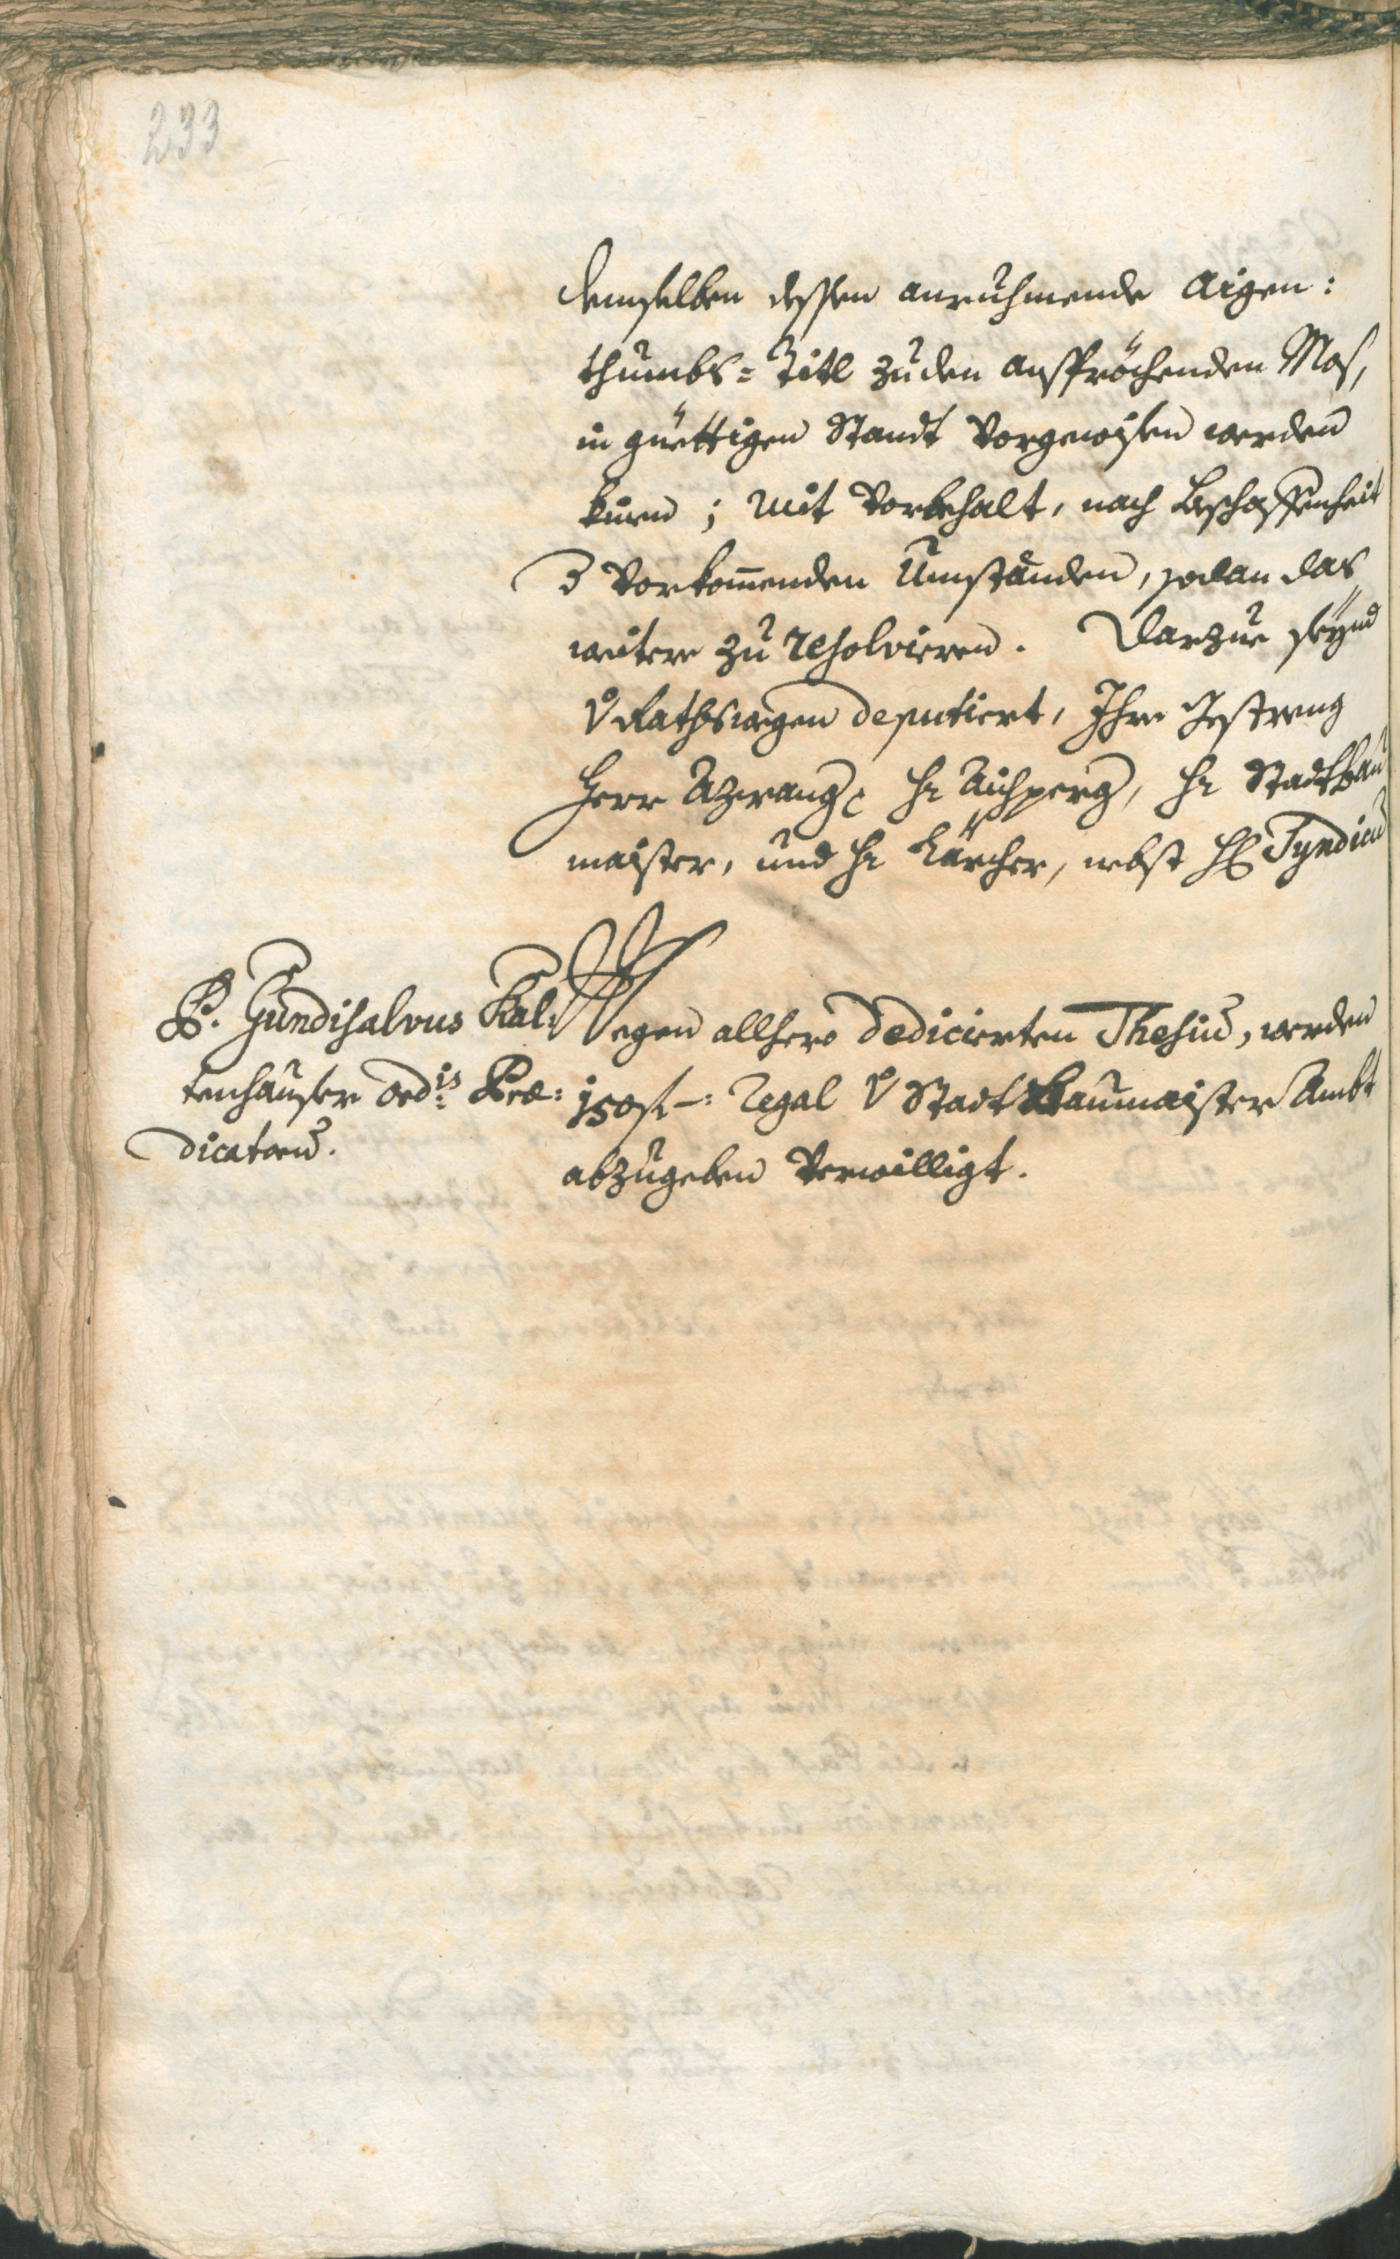 233
demselben dessen anruehmende Aigen:
thumbs= Titl zu den anspröchenden Mos,
in güettigen Standt vorgewisen werden
kunn; mit Vorbehalt, nach Beschaffenheit
vorkom̅enden Umständen, sodan das
weitere zu resolvieren. Darzue seynd
Rathswegen deputiert, Ihre Gestreng
Herr Azwang, H: Aichperg, H: Stadtbau
maister, und H: Kärcher, nebst H: Syndicus
P. Gundisalvus Kal:
tenhauser Ord:is Præ:
dicatorum.
Wegen allhero dedicierten Thesium, werden
150 f –: Regal Stadt Baumaister Ambt
abzugeben verwilligt.